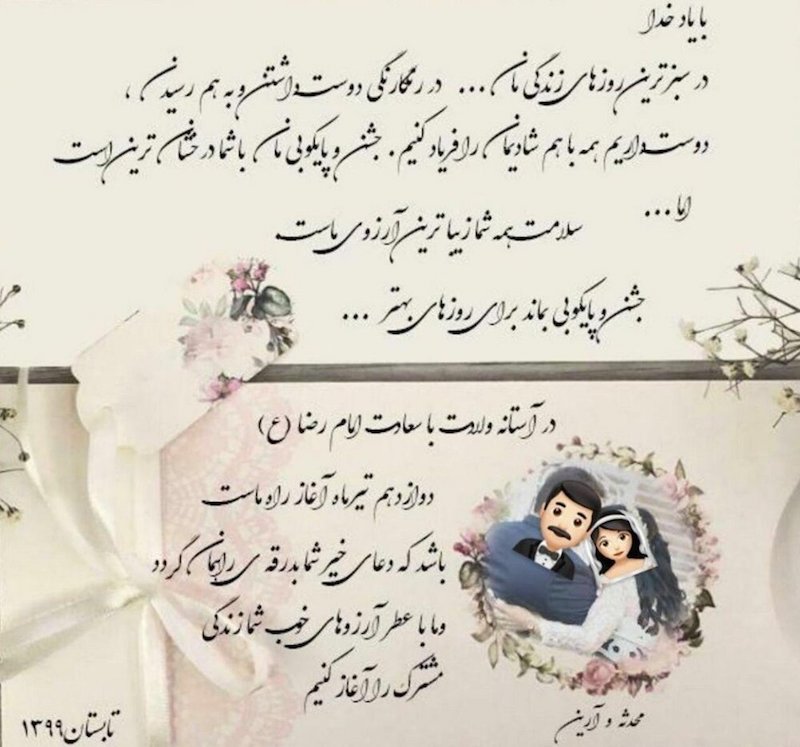 با یاد خدا
در سبزترین روزهای زندگی مان ... در رنگارنگی دوست داشتن و به هم رسیدن ،
دوست داریم همه با هم شادیمان را فریاد کنیم . جشن و پایکوبی مان با شما درخشان ترین است
اما ...
سلامت همه شما زیبا ترین آرزوی ماست
جشن و پایکوبی بماند برای روزهای بهتر ...
در آستانه ولادت با سعادت امام رضا (ع)
دوازدهم تیرماه آغاز راه ماست
باشد که دعای خیر شما بدرقه ی راهمان گردد
وما با عطر آرزوهای خوب شما زندگی
مشترک را آغاز کنیم
محدثه و آرین
تابستان ۱۳۹۹